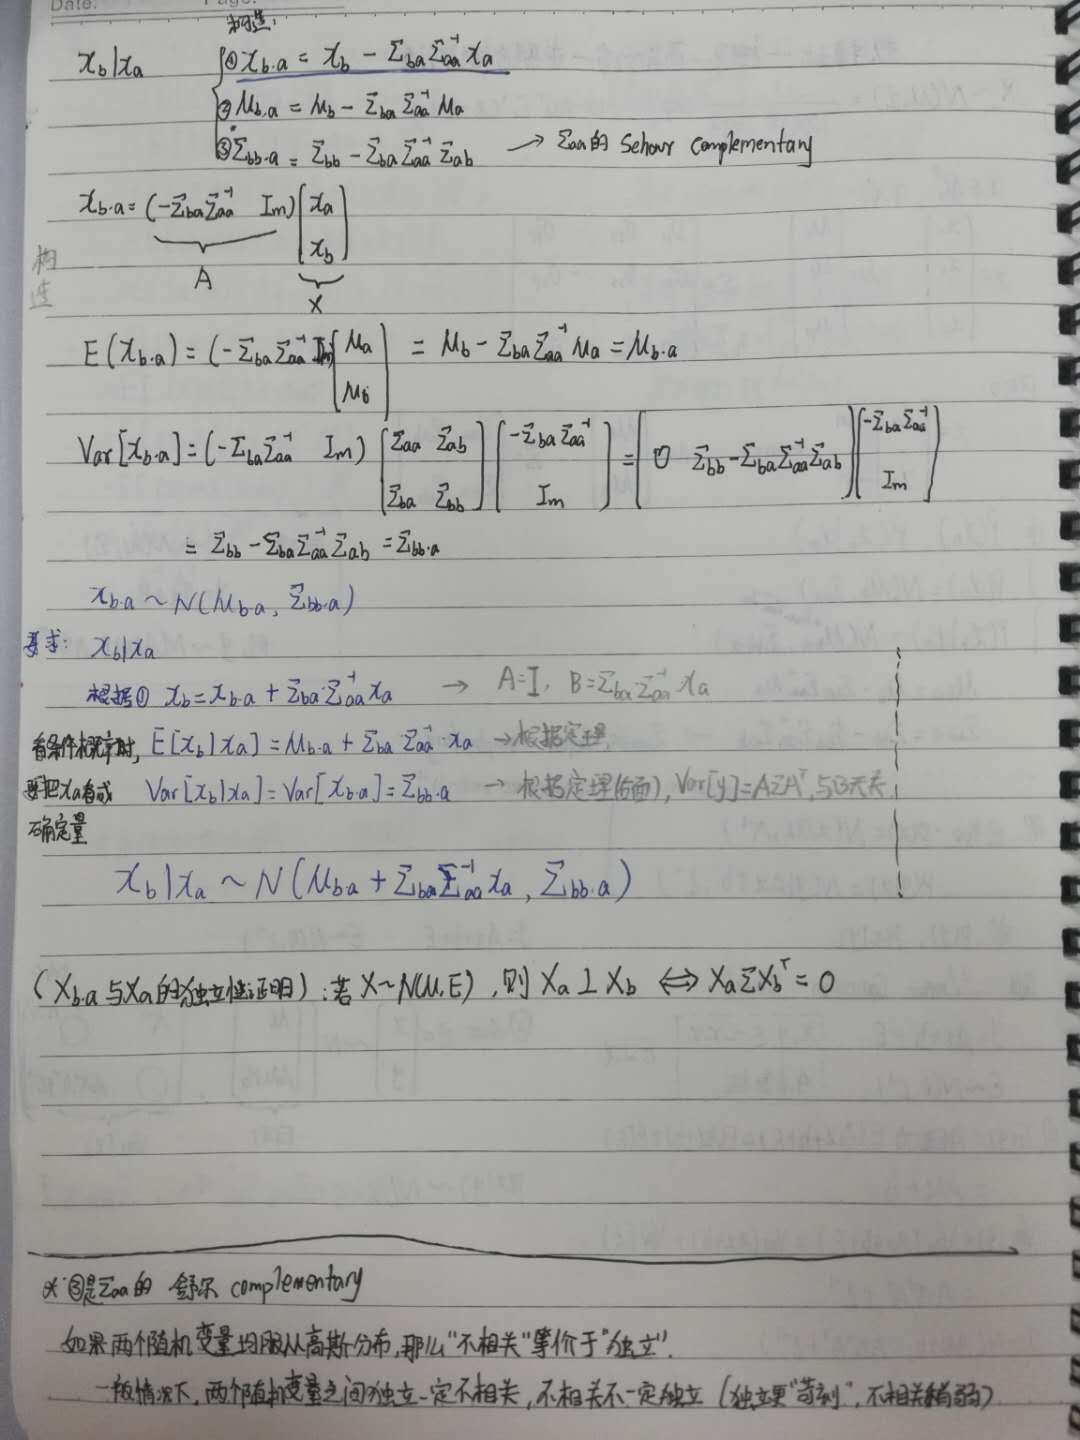 Date:
构造:
x_b|x_a ① x_{b·a} = x_b - Σ_{ba} Σ_{aa}^{-1} x_a
② μ_{b·a} = μ_b - Σ_{ba} Σ_{aa}^{-1} μ_a
③ Σ_{bb·a} = Σ_{bb} - Σ_{ba} Σ_{aa}^{-1} Σ_{ab} → Σ_{aa}的 Schour complementary
x_{b·a} = (-Σ_{ba} Σ_{aa}^{-1} I_m) (x_a x_b)
A X
构造
E(x_{b·a}) = (-Σ_{ba} Σ_{aa}^{-1} I_m) (μ_a μ_b) = μ_b - Σ_{ba} Σ_{aa}^{-1} μ_a = μ_{b·a}
Var[x_{b·a}] = (-Σ_{ba} Σ_{aa}^{-1} I_m) (Σ_{aa} Σ_{ab} Σ_{ba} Σ_{bb}) (-Σ_{ba} Σ_{aa}^{-1} I_m) = (0 Σ_{bb} - Σ_{ba} Σ_{aa}^{-1} Σ_{ab}) (-Σ_{ba} Σ_{aa}^{-1} I_m)
= Σ_{bb} - Σ_{ba} Σ_{aa}^{-1} Σ_{ab} = Σ_{bb·a}
x_{b·a} ~ N(μ_{b·a}, Σ_{bb·a})
要求: x_b|x_a
根据① x_b = x_{b·a} + Σ_{ba}·Σ_{aa}^{-1} x_a → A=I, B=Σ_{ba}·Σ_{aa}^{-1} x_a
有条件概率时, E[x_b|x_a] = μ_{b·a} + Σ_{ba}·Σ_{aa}^{-1}·x_a → 根据定理,
要把x_a看成 Var[x_b|x_a] = Var[x_{b·a}] = Σ_{bb·a} → 根据定理(后面), Var[y]=AΣA^T, 与B无关
确定量
x_b|x_a ~ N(μ_{b·a} + Σ_{ba} Σ_{aa}^{-1} x_a, Σ_{bb·a})
(X_{b·a}与X_a的独立性证明): 若X~N(μ,Σ), 则 X_a⊥X_b ⇔ X_aΣX_b^T = 0
※ ③是Σ_{aa}的 舒尔 complementary
如果两个随机变量均服从高斯分布,那么"不相关"等价于"独立".
一般情况下,两个随机变量之间独立一定不相关,不相关不一定独立(独立更"苛刻",不相关稍弱)